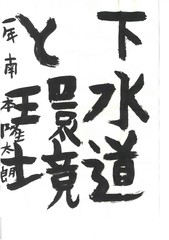 下水道
と環境
一年 南本隆太朗